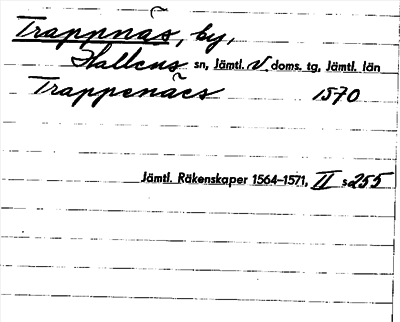 Trappnäs, by,
Hallens sn, Jämtl. V. doms. tg, Jämtl. län
Trappenäes 1570
Jämtl. Räkenskaper 1564–1571, II s. 255